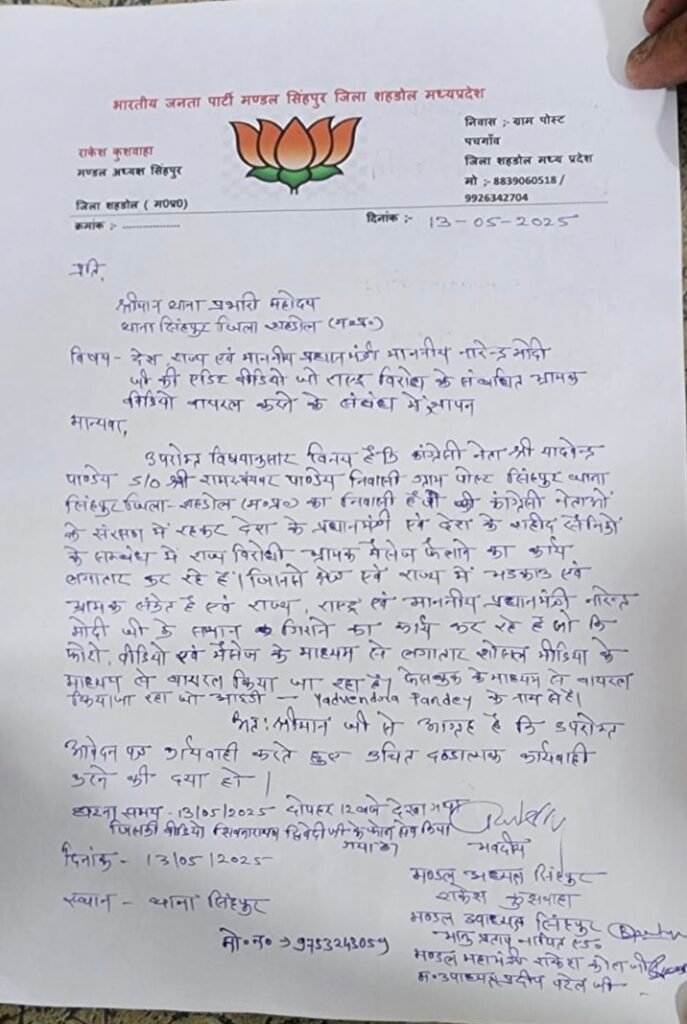 भारतीय जनता पार्टी मण्डल सिंहपुर जिला शहडोल मध्यप्रदेश
राकेश कुशवाहा
मण्डल अध्यक्ष सिंहपुर
जिला शहडोल ( म0प्र0)
क्रमांक :- ..................
निवास :- ग्राम पोस्ट
पचगाँव
जिला शहडोल मध्य प्रदेश
मो :- 8839060518 /
9926342704
दिनांक :- 13-05-2025
प्रति,
श्रीमान थाना प्रभारी महोदय
थाना सिंहपुर जिला शहडोल (म०प्र०)
विषय - देश, राज्य एवं माननीय प्रधानमंत्री माननीय नरेन्द्र मोदी
जी की एडिट वीडियो जो राष्ट्र विरोध के संबंधित भ्रामक
वीडियो वायरल करने के संबंध में ज्ञापन
मान्यवर,
उपरोक्त विषयानुसार विनय है कि कांग्रेसी नेता श्री यादवेन्द्र
पाण्डेय S/O श्री पाण्डेय निवासी ग्राम पोस्ट सिंहपुर थाना
सिंहपुर जिला-शहडोल (म०प्र०) का निवासी है जो कांग्रेसी नेताओं
के संरक्षण में रहकर देश के प्रधानमंत्री एवं देश के शहीद सैनिकों
के सम्बंध में राज्य विरोधी भ्रामक मैसेज फैलाने का कार्य
लगातार कर रहे हैं। जिनमे क्षेत्र एवं राज्य में भडकाउ एवं
भ्रामक संकेत है एवं राज्य, राष्ट्र एवं माननीय प्रधानमंत्री नरेन्द्र
मोदी जी के सम्मान गिराने का कार्य कर रहे हैं जो कि
फोटो, वीडियो एवं मैसेज के माध्यम से लगातार शोसल मीडिया के
माध्यम से वायरल किया जा रहा है। फेसबुक के माध्यम से वायरल
किया जा रहा जो आईडी - Yadvendra Pandey के नाम से है।
अतः श्रीमान जी से आग्रह है कि उपरोक्त
आवेदन पत्र कार्यवाही करते हुए उचित दण्डात्मक कार्यवाही
करने की दया हो।
घटना समय - 13/05/2025 दोपहर 12 बजे देखा गया
जिसकी वीडियो शिवनारायण द्विवेदी जी के फोन सेव किया
गया है
दिनांक - 13/05/2025
भवदीय
स्थान - थाना सिंहपुर
मण्डल अध्यक्ष सिंहपुर
राकेश कुशवाहा
मण्डल उपाध्यक्ष सिंहपुर
भानु प्रताप
मो.न० → 9753243059
मण्डल महामंत्री राकेश कोल जी
म.उपाध्यक्ष प्रदीप पटेल जी